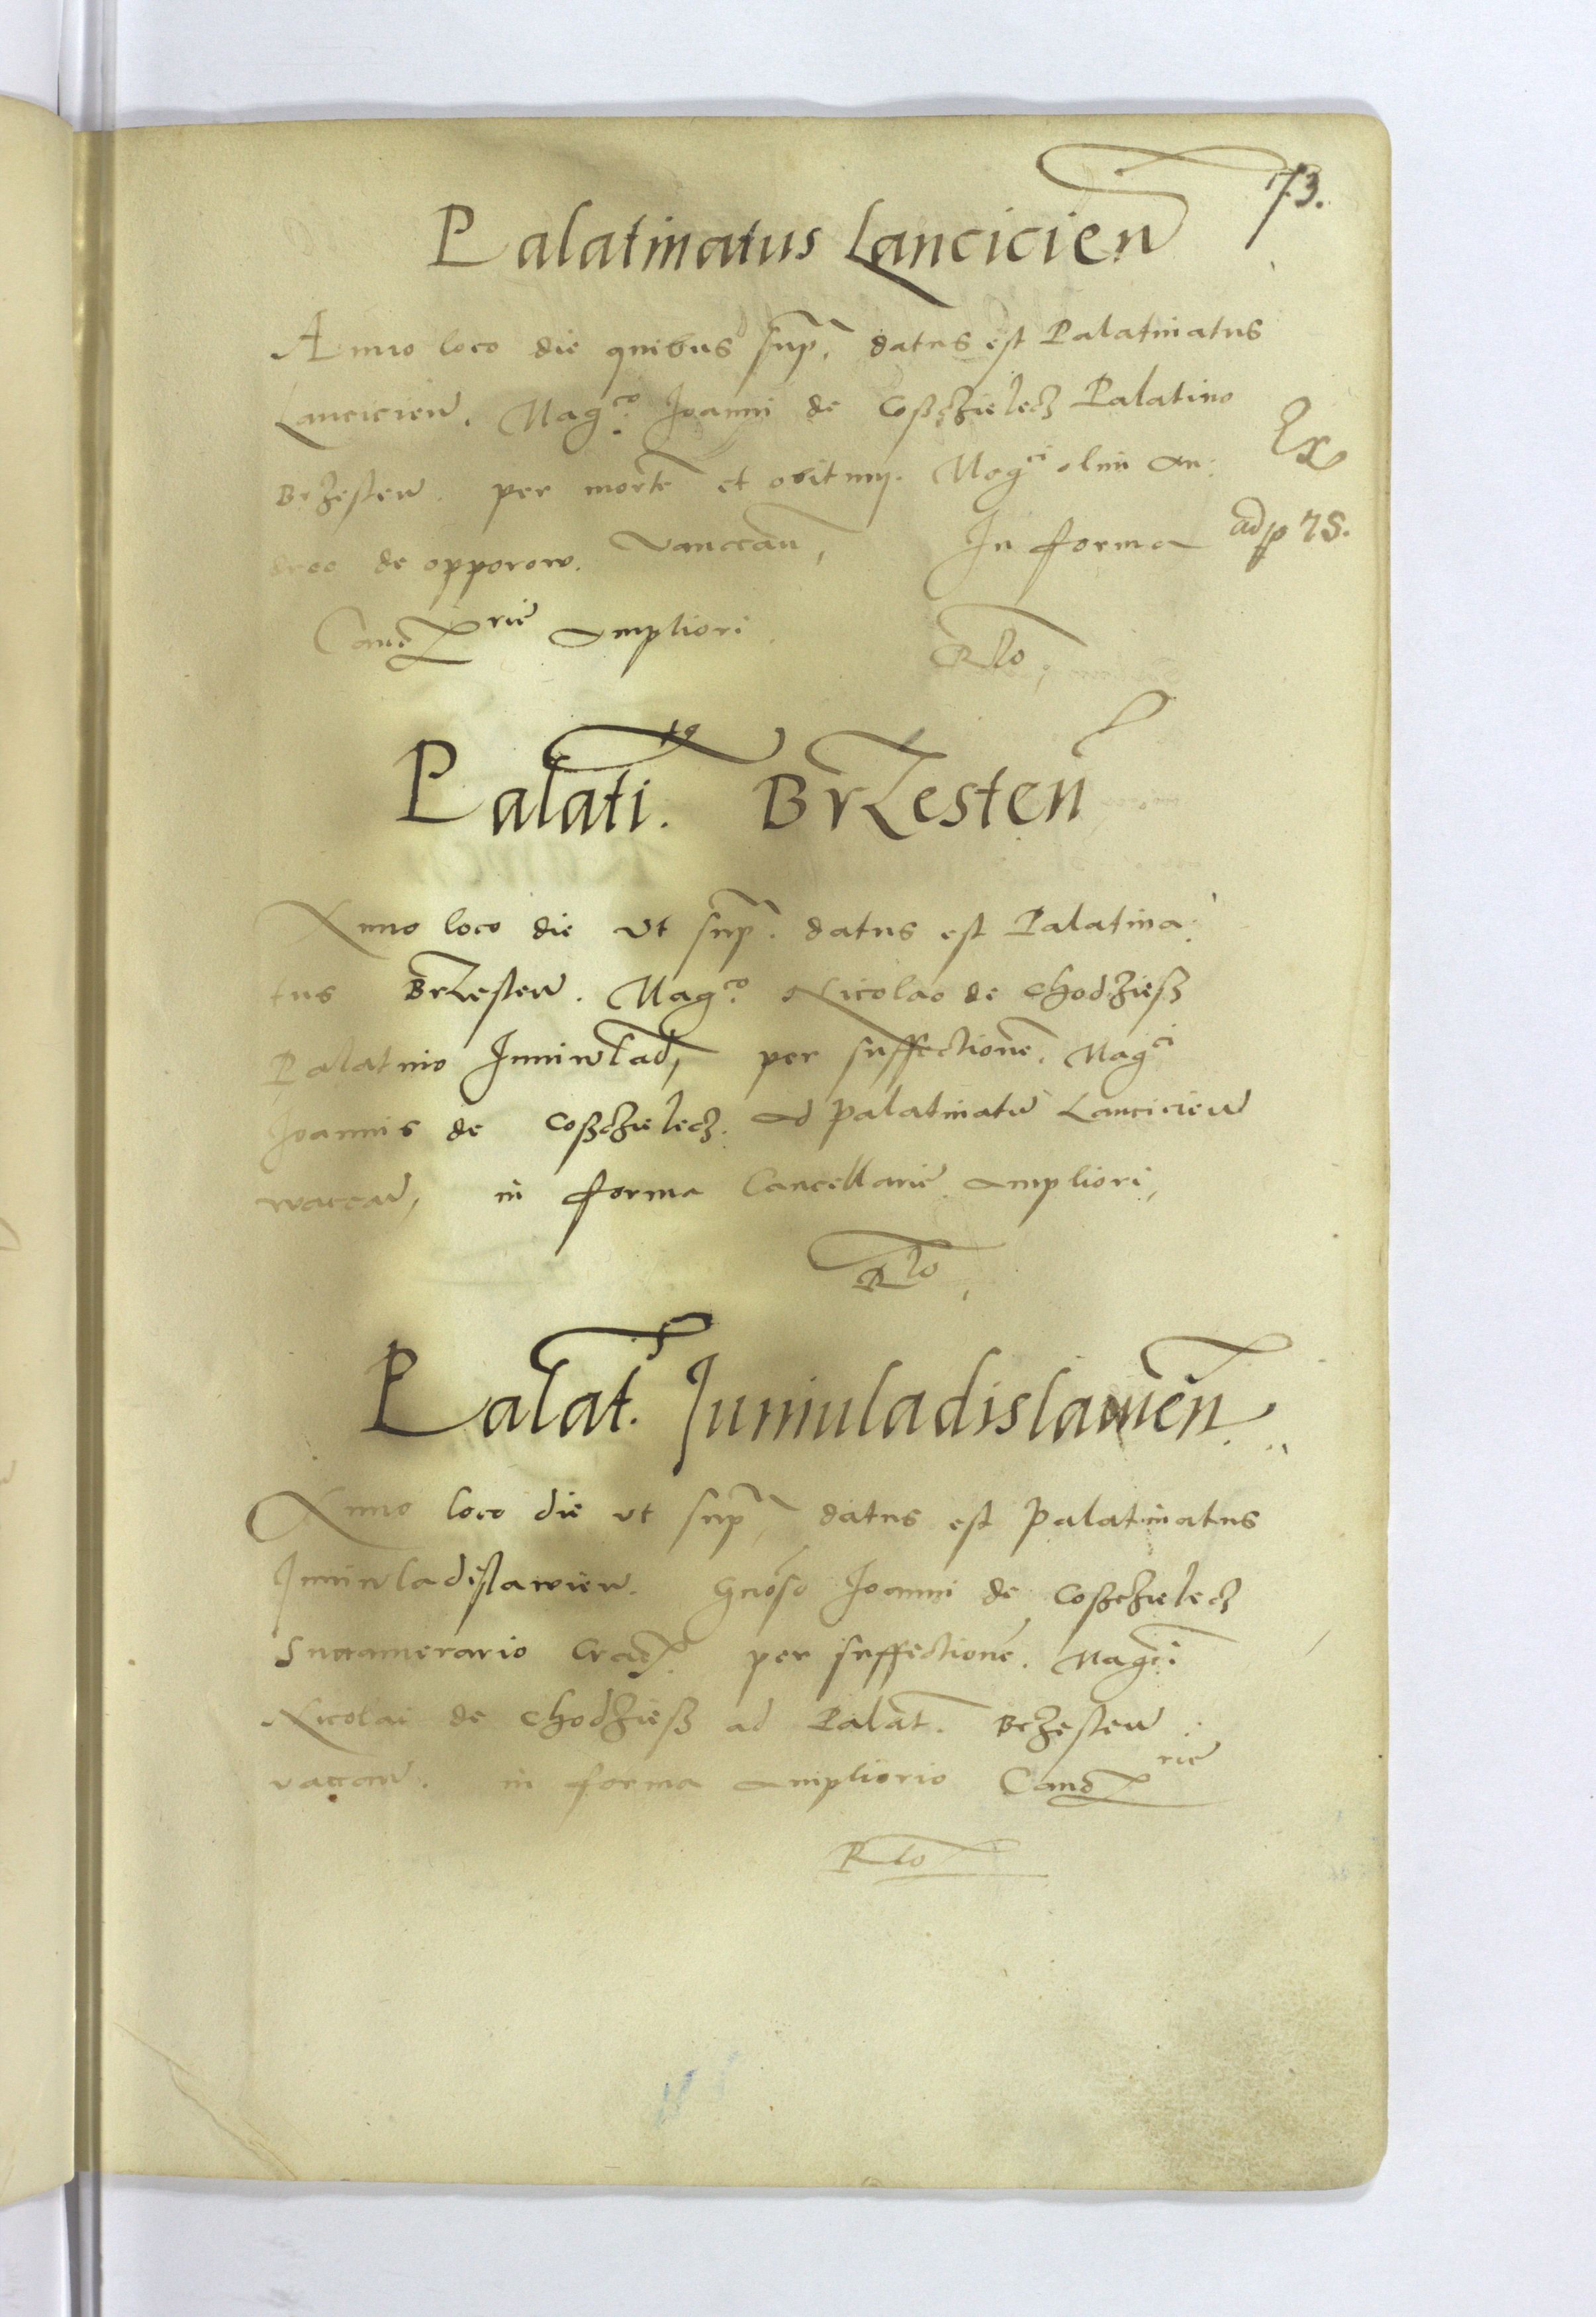 73.
Palatinatus Lancicien
Anno loco die quibus sup, datus est Palatinatus
Lancicien. Mag.co Joanni de Coßczielecz Palatino
Brzesten. per morte et obitum. Mag.ci olim An:
Ex
dree de opporow. vanccan, In forma
ad p 75.
Canc rie ampliori.
Rlo,
Palati.tus Brzesten
Anno loco die ut sup. datus est Palatina:
tus Brzesten. Mag.co Nicolao de Chodzieß
Palatino Juniwlad, per suffectione. Mag.ci
Joannis de Coßczielecz. ad palatinatu Lancicien
waccan, in forma Cancellarie ampliori,
Rlo,
Palat.s Juniuladislauien
Anno loco die ut sup, datus est Palatinatus
Juniwladislawien. Gnoso Joanni de Coßczielecz
Succamerario Crac. per suffectione. Mag.ci
Nicolai de Chodzieß ad Palat. Brzesten
vaccan. in forma ampliorio Canc rie
Rlo